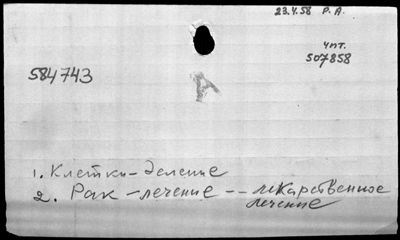 23.4.58 P. A.
чит.
507858
584743
1. Клетки - деление
2. Рак - лечение -- лекарственное
лечение